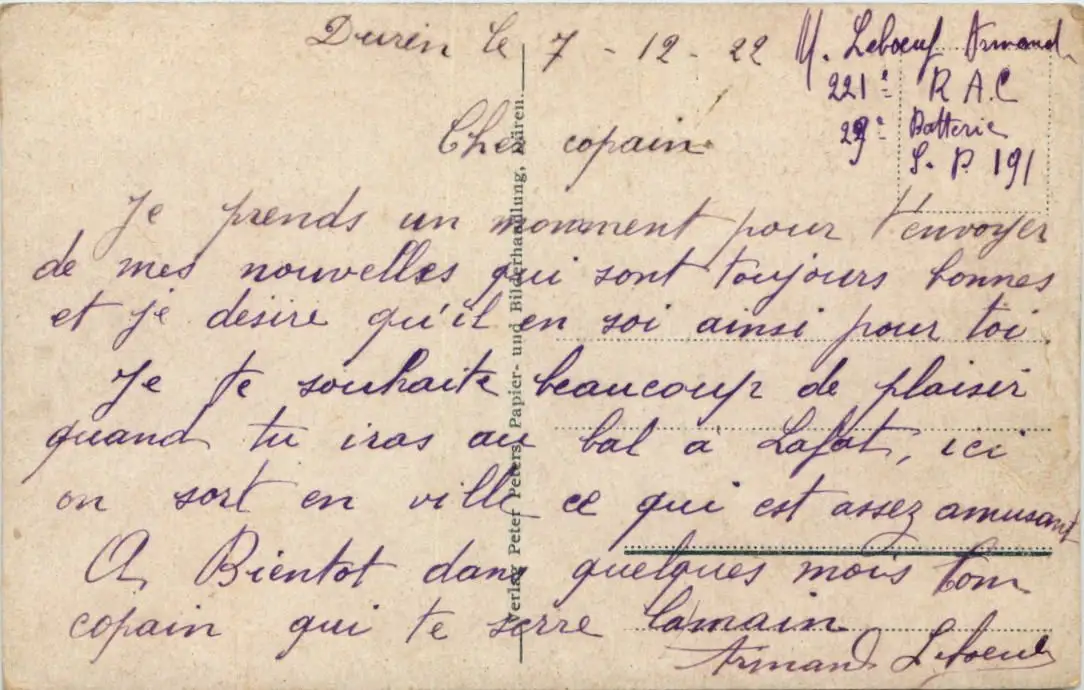 Duren le 7 - 12 - 22
M. Leboeuf Armand
221e R A C
29e Batterie
S. P 191
Cher copain
Je prends un momment pour t'envoyer
de mes nouvelles qui sont toujours bonnes
et je désire qu'il en soi ainsi pour toi.
Je te souhaite beaucoup de plaisir
quand tu iras au bal à Lafat, ici
on sort en ville ce qui est assez amusant
A Bientot dans quelques mois ton
copain qui te serre lamain
Armand Leboeuf
Verlag Peter Peters, Papier- und Bilderhandlung, Düren.